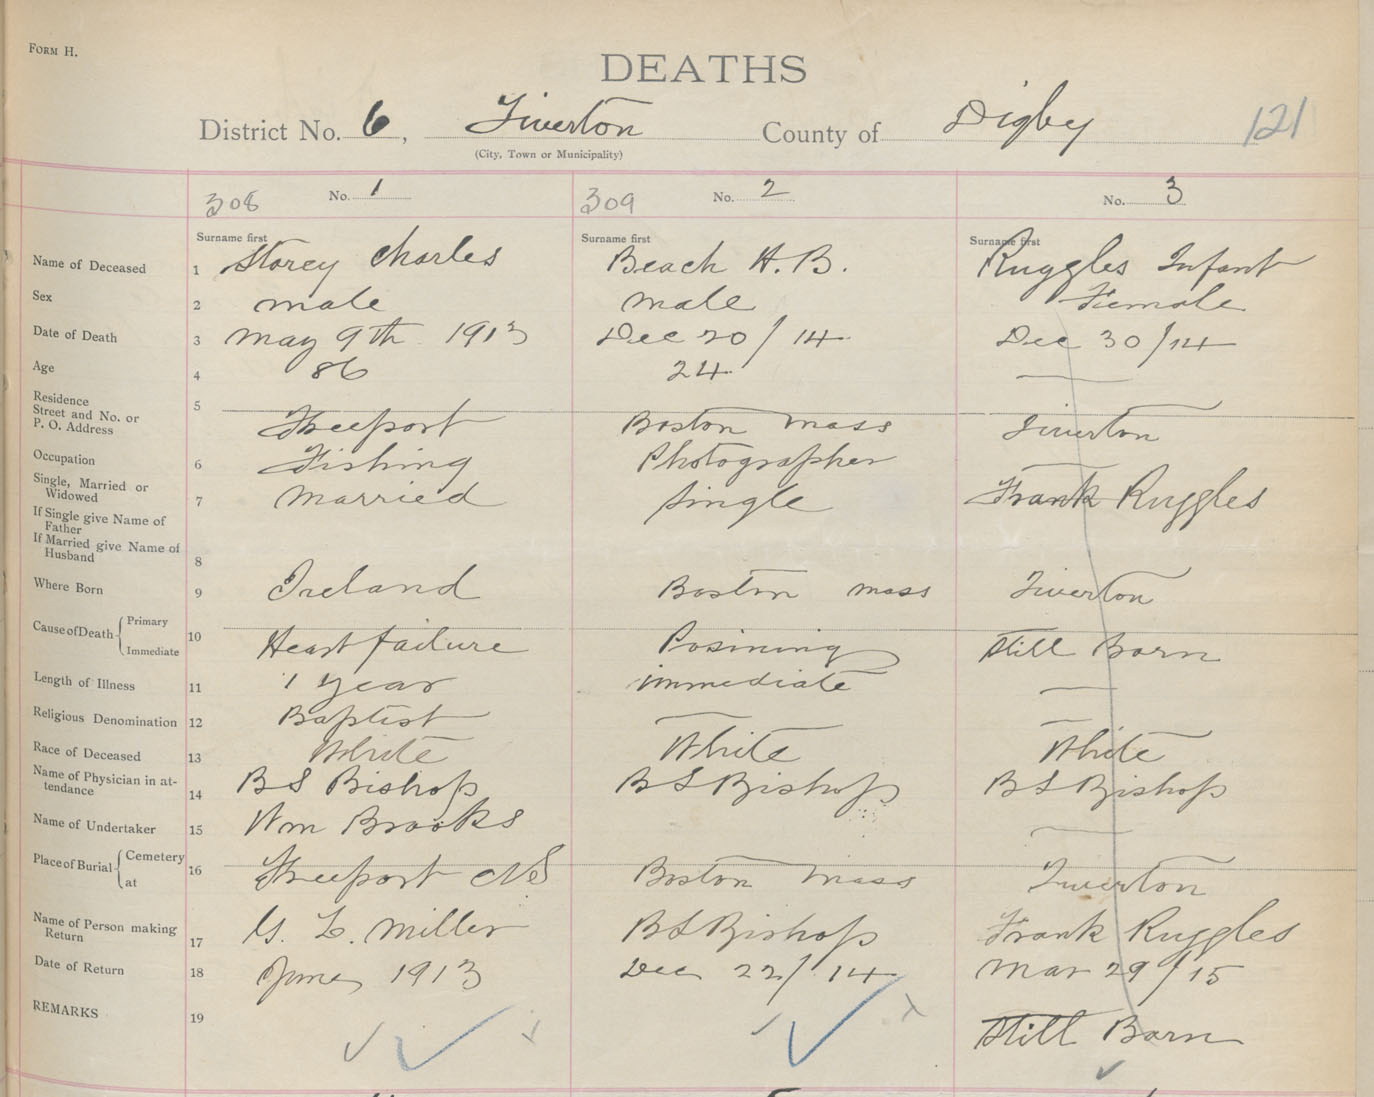 FORM H.
DEATHS
District No. 6, Tiverton County of Digby 121
(City, Town or Municipality)
308 No. 1 309 No. 2 No. 3
Surname first Surname first Surname first
Name of Deceased 1 Storey Charles Beach H. B. Ruggles Infant
Sex 2 male male Female
Date of Death 3 May 9th 1913 Dec 20/14 Dec 30/14
Age 4 86 24 —
Residence
Street and No. or
P. O. Address 5 Freeport Boston Mass Tiverton
Occupation 6 Fishing Photographer
Single, Married or
Widowed 7 married single Frank Ruggles
If Single give Name of
Father
If Married give Name of
Husband 8
Where Born 9 Ireland Boston mass Tiverton
Cause of Death Primary
Immediate 10 Heart failure Posining Still Born
Length of Illness 11 1 year immediate —
Religious Denomination 12 Baptist — —
Race of Deceased 13 White White White
Name of Physician in at-
tendance 14 B S Bishop B S Bishop B S Bishop
Name of Undertaker 15 Wm Brooks —
Place of Burial Cemetery
at 16 Freeport NS Boston Mass Tiverton
Name of Person making
Return 17 G. L. Miller B S Bishop Frank Ruggles
Date of Return 18 June 1913 Dec 22/14 Mar 29/15
REMARKS 19 Still Born